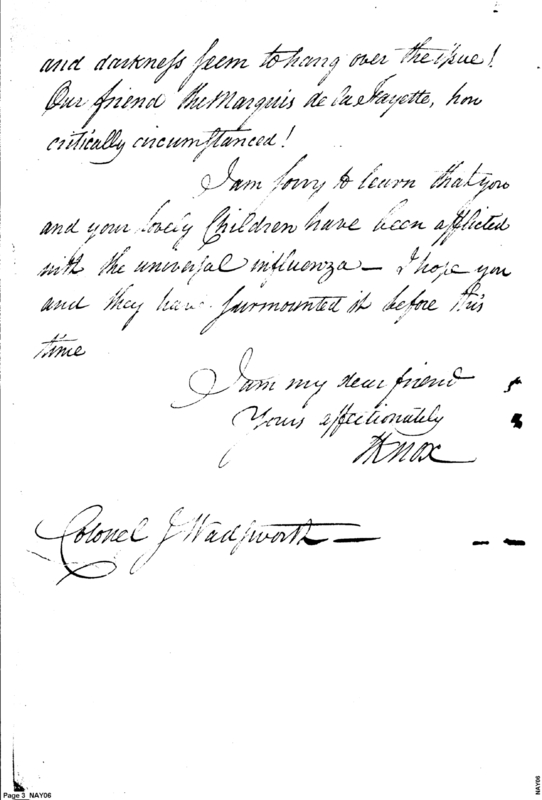 and darkness seem to hang over the issue!
Our friend the Marquis de la Fayette, how
critically circumstanced!
I am sorry to learn that you
and your lovely Children have been afflicted
with the universal influenza — I hope you
and they have surmounted it before this
time
I am my dear friend
Yours affectionately
HKnox
Colonel J Wadsworth —
Page 3 NAY06
NAY06